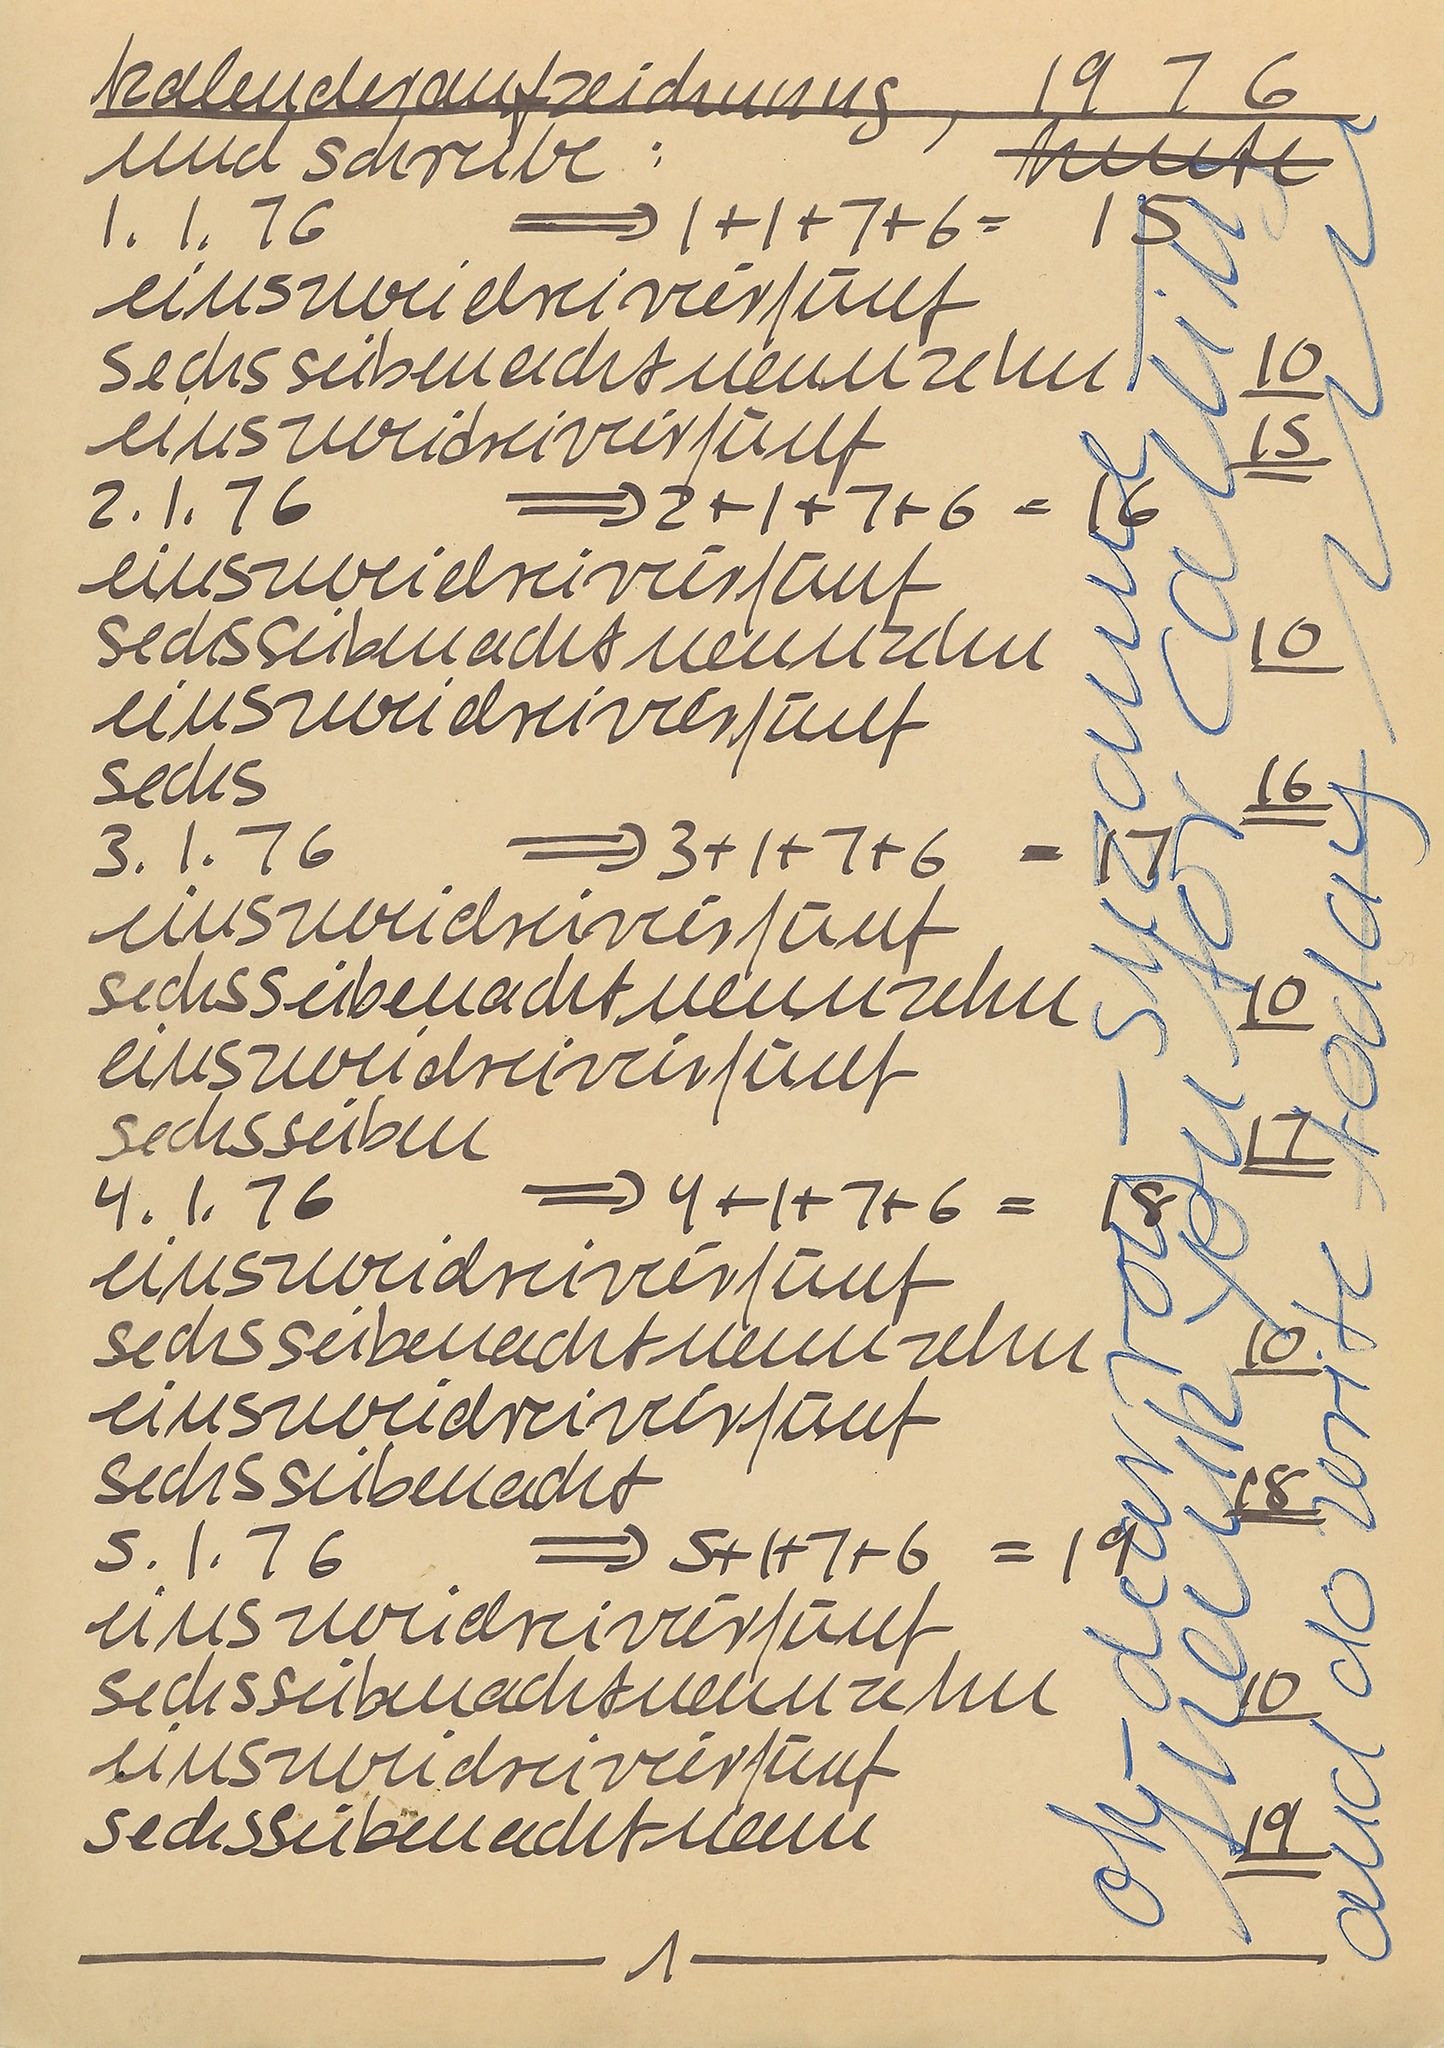 kalenderaufzeichnung, 1976
und schreibe : heute
1. 1. 76 ⟹ 1+1+7+6= 15
einszweidreivierfünf
sechssiebenachtneunzehn 10
einszweidreivierfünf 15
2. 1. 76 ⟹ 2+1+7+6 = 16
einszweidreivierfünf
sechssiebenachtneunzehn 10
einszweidreivierfünf
sechs 16
3. 1. 76 ⟹ 3+1+7+6 = 17
einszweidreivierfünf
sechssiebenachtneunzehn 10
einszweidreivierfünf
sechssieben 17
4. 1. 76 ⟹ 4+1+7+6 = 18
einszweidreivierfünf
sechssiebenachtneunzehn 10
einszweidreivierfünf
sechssiebenacht 18
5. 1. 76 ⟹ 5+1+7+6 = 19
einszweidreivierfünf
sechssiebenachtneunzehn 10
einszweidreivierfünf
sechssiebenachtneun 19
1
oh – dear – suzanne
thank you for calling
and do write today